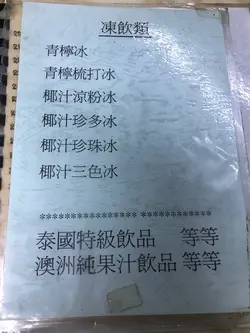 凍飲類
青檸冰
青檸梳打冰
椰汁涼粉冰
椰汁珍多冰
椰汁珍珠冰
椰汁三色冰
************************
泰國特級飲品 等等
澳洲純果汁飲品 等等